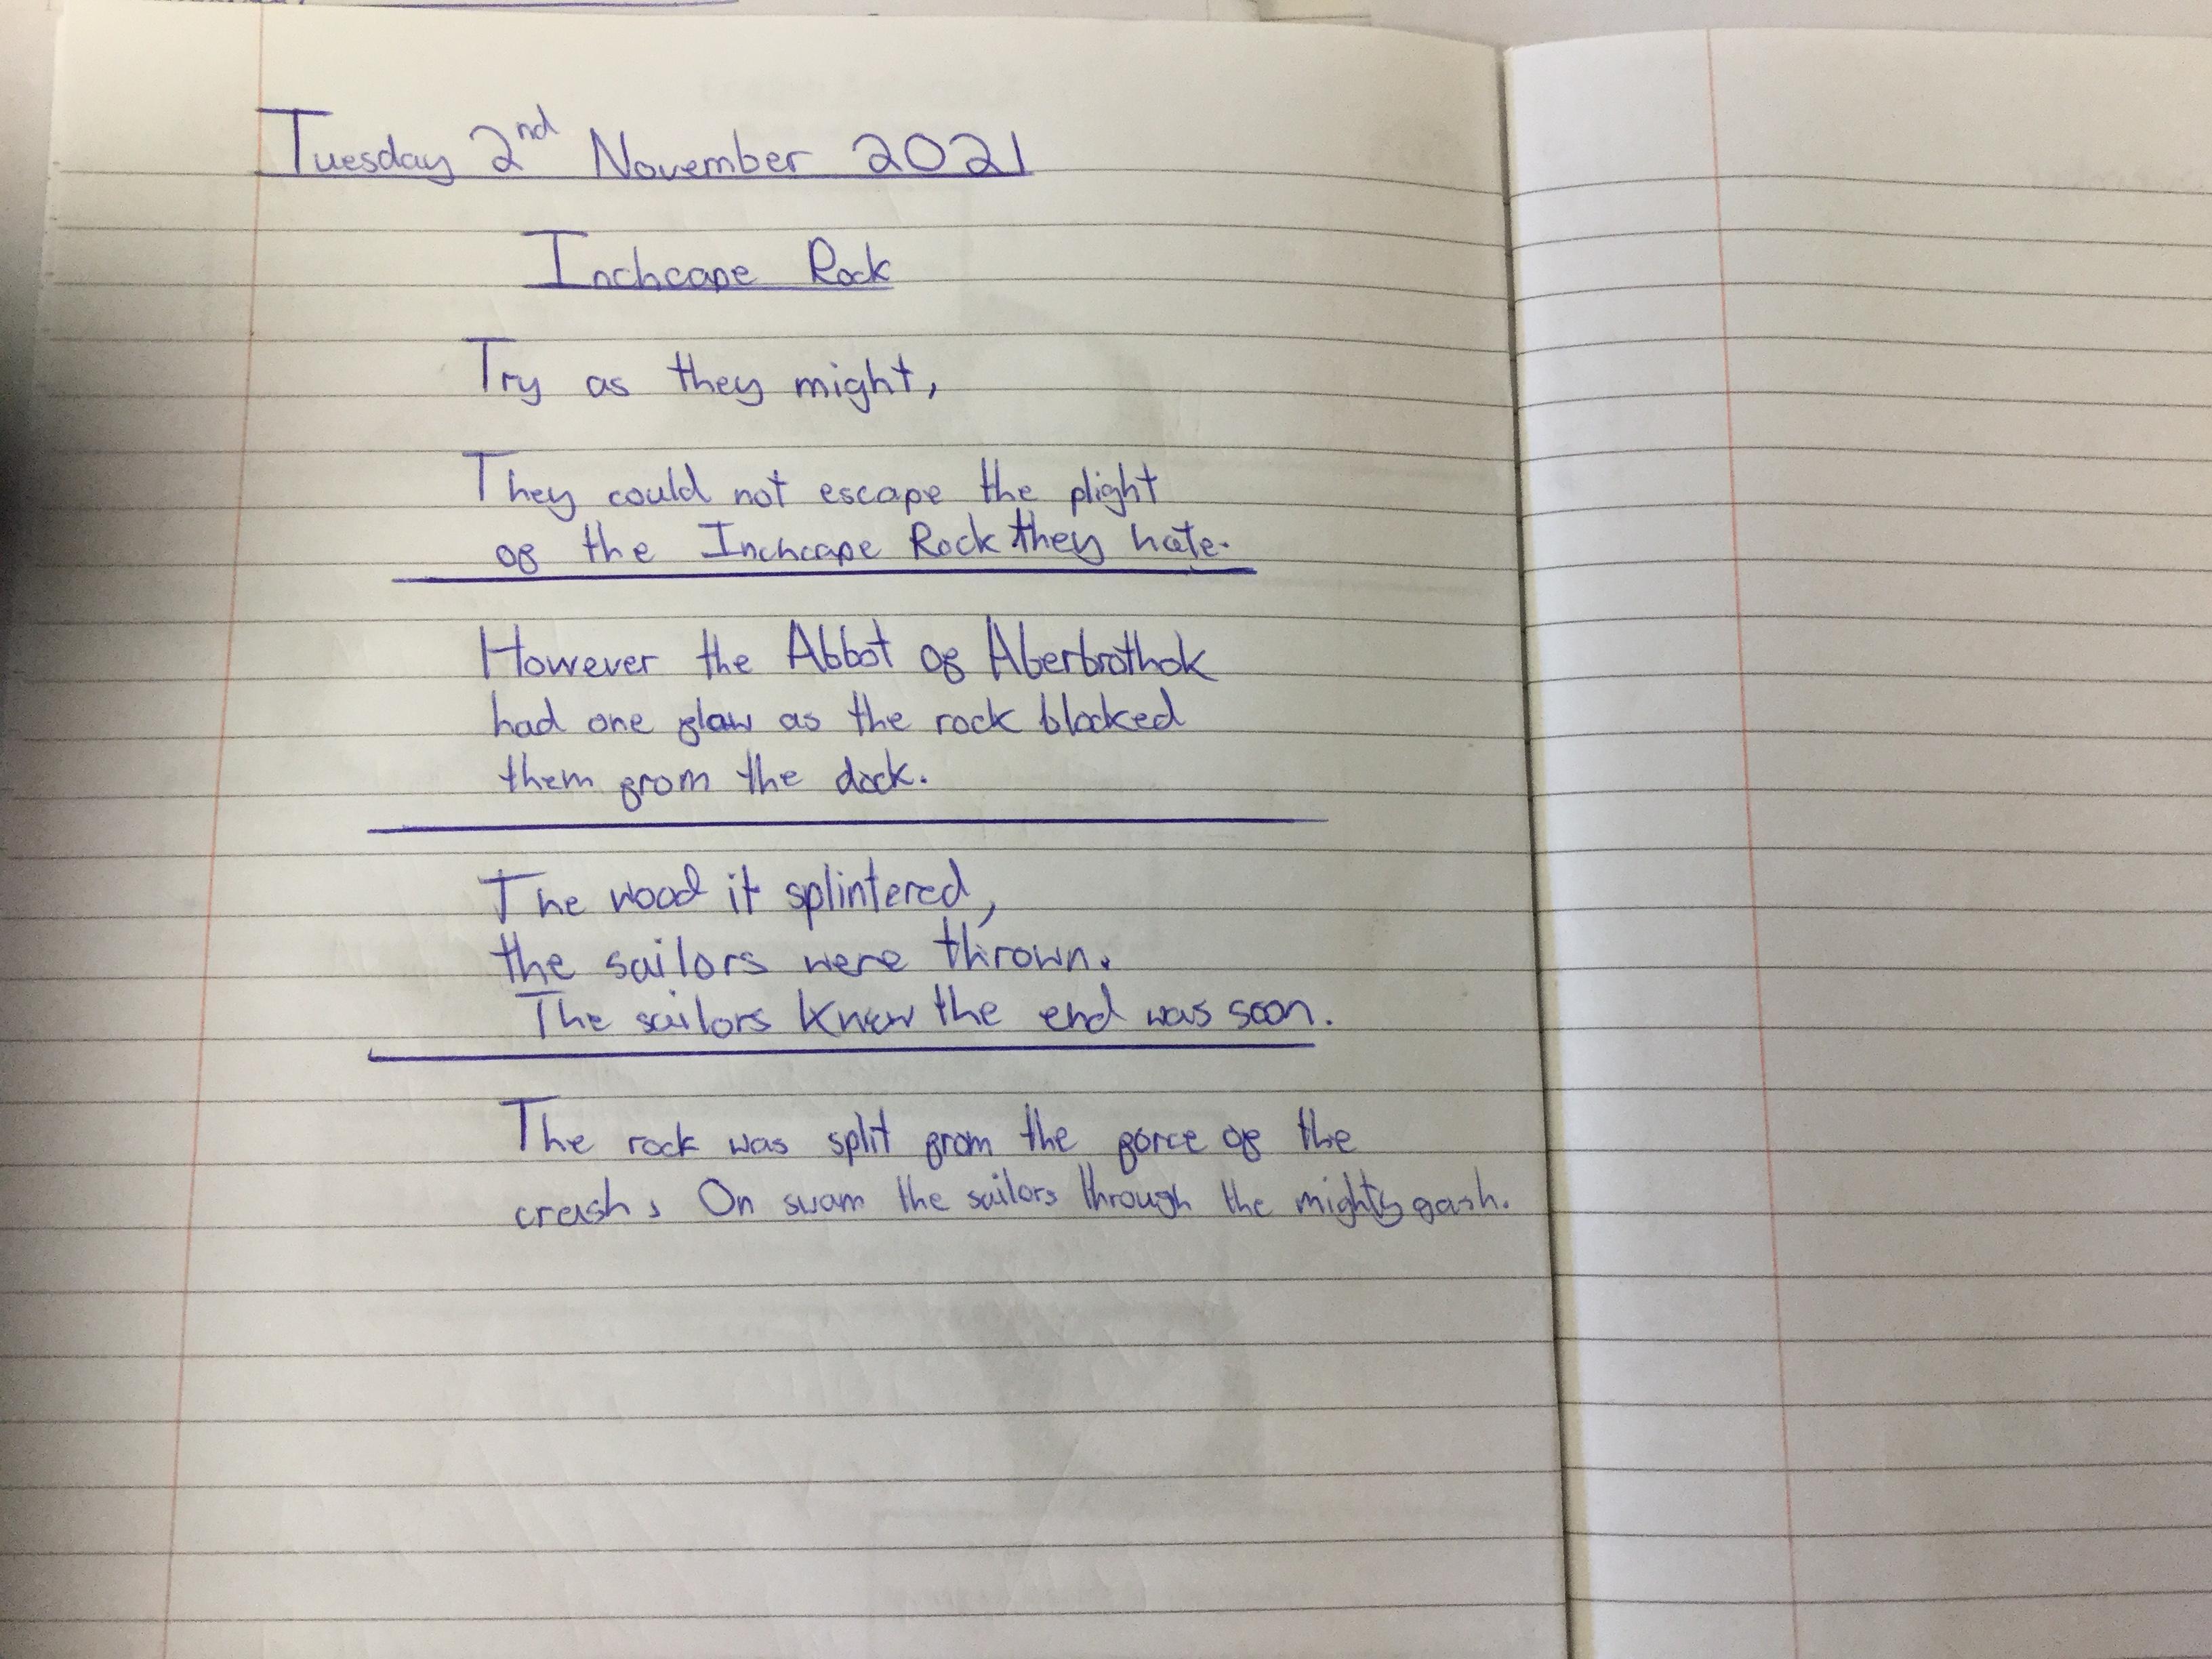 Tuesday 2nd November 2021
Inchcape Rock
Try as they might,
They could not escape the plight
of the Inchcape Rock they hate.
However the Abbot of Aberbrothok
had one flaw as the rock blocked
them from the dock.
The wood it splintered,
the sailors were thrown.
The sailors knew the end was soon.
The rock was split from the force of the
crash, On swam the sailors through the mighty gash.